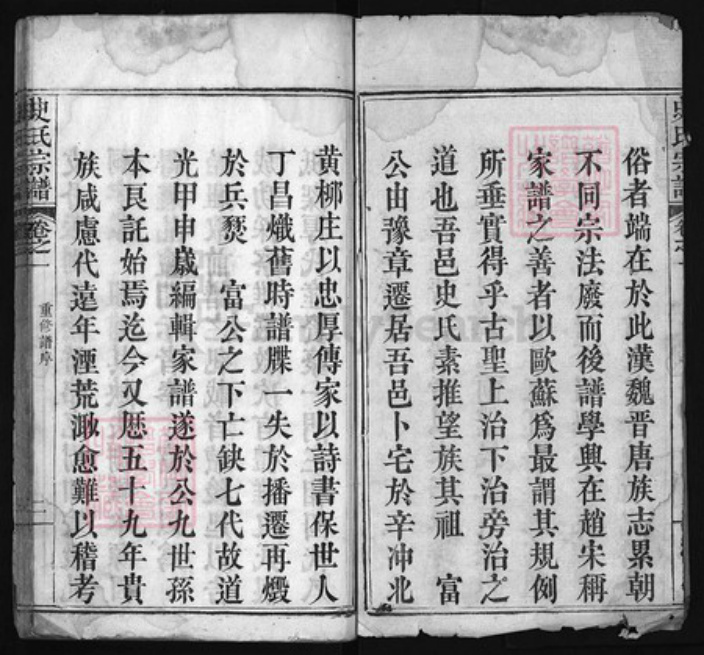 俗者端在於此漢魏晉唐族志累朝
不同宗法廢而後譜學興在趙宋稱
家譜之善者以歐蘇爲最謂其規例
所垂實得乎古聖上治下治旁治之
道也吾邑史氏素推望族其祖 富
公由豫章遷居吾邑卜宅於辛冲北
黄柳庄以忠厚傳家以詩書保世人
丁昌熾舊時譜牒一失於播遷再燬
於兵燹 富公之下亡缺七代故道
光甲申歲編輯家譜遂於公九世孫
本艮託始焉迄今又歷五十九年貴
族咸慮代遠年湮荒渺愈難以稽考
史氏宗譜 卷之一
重修譜序
二
史氏宗譜
卷之一